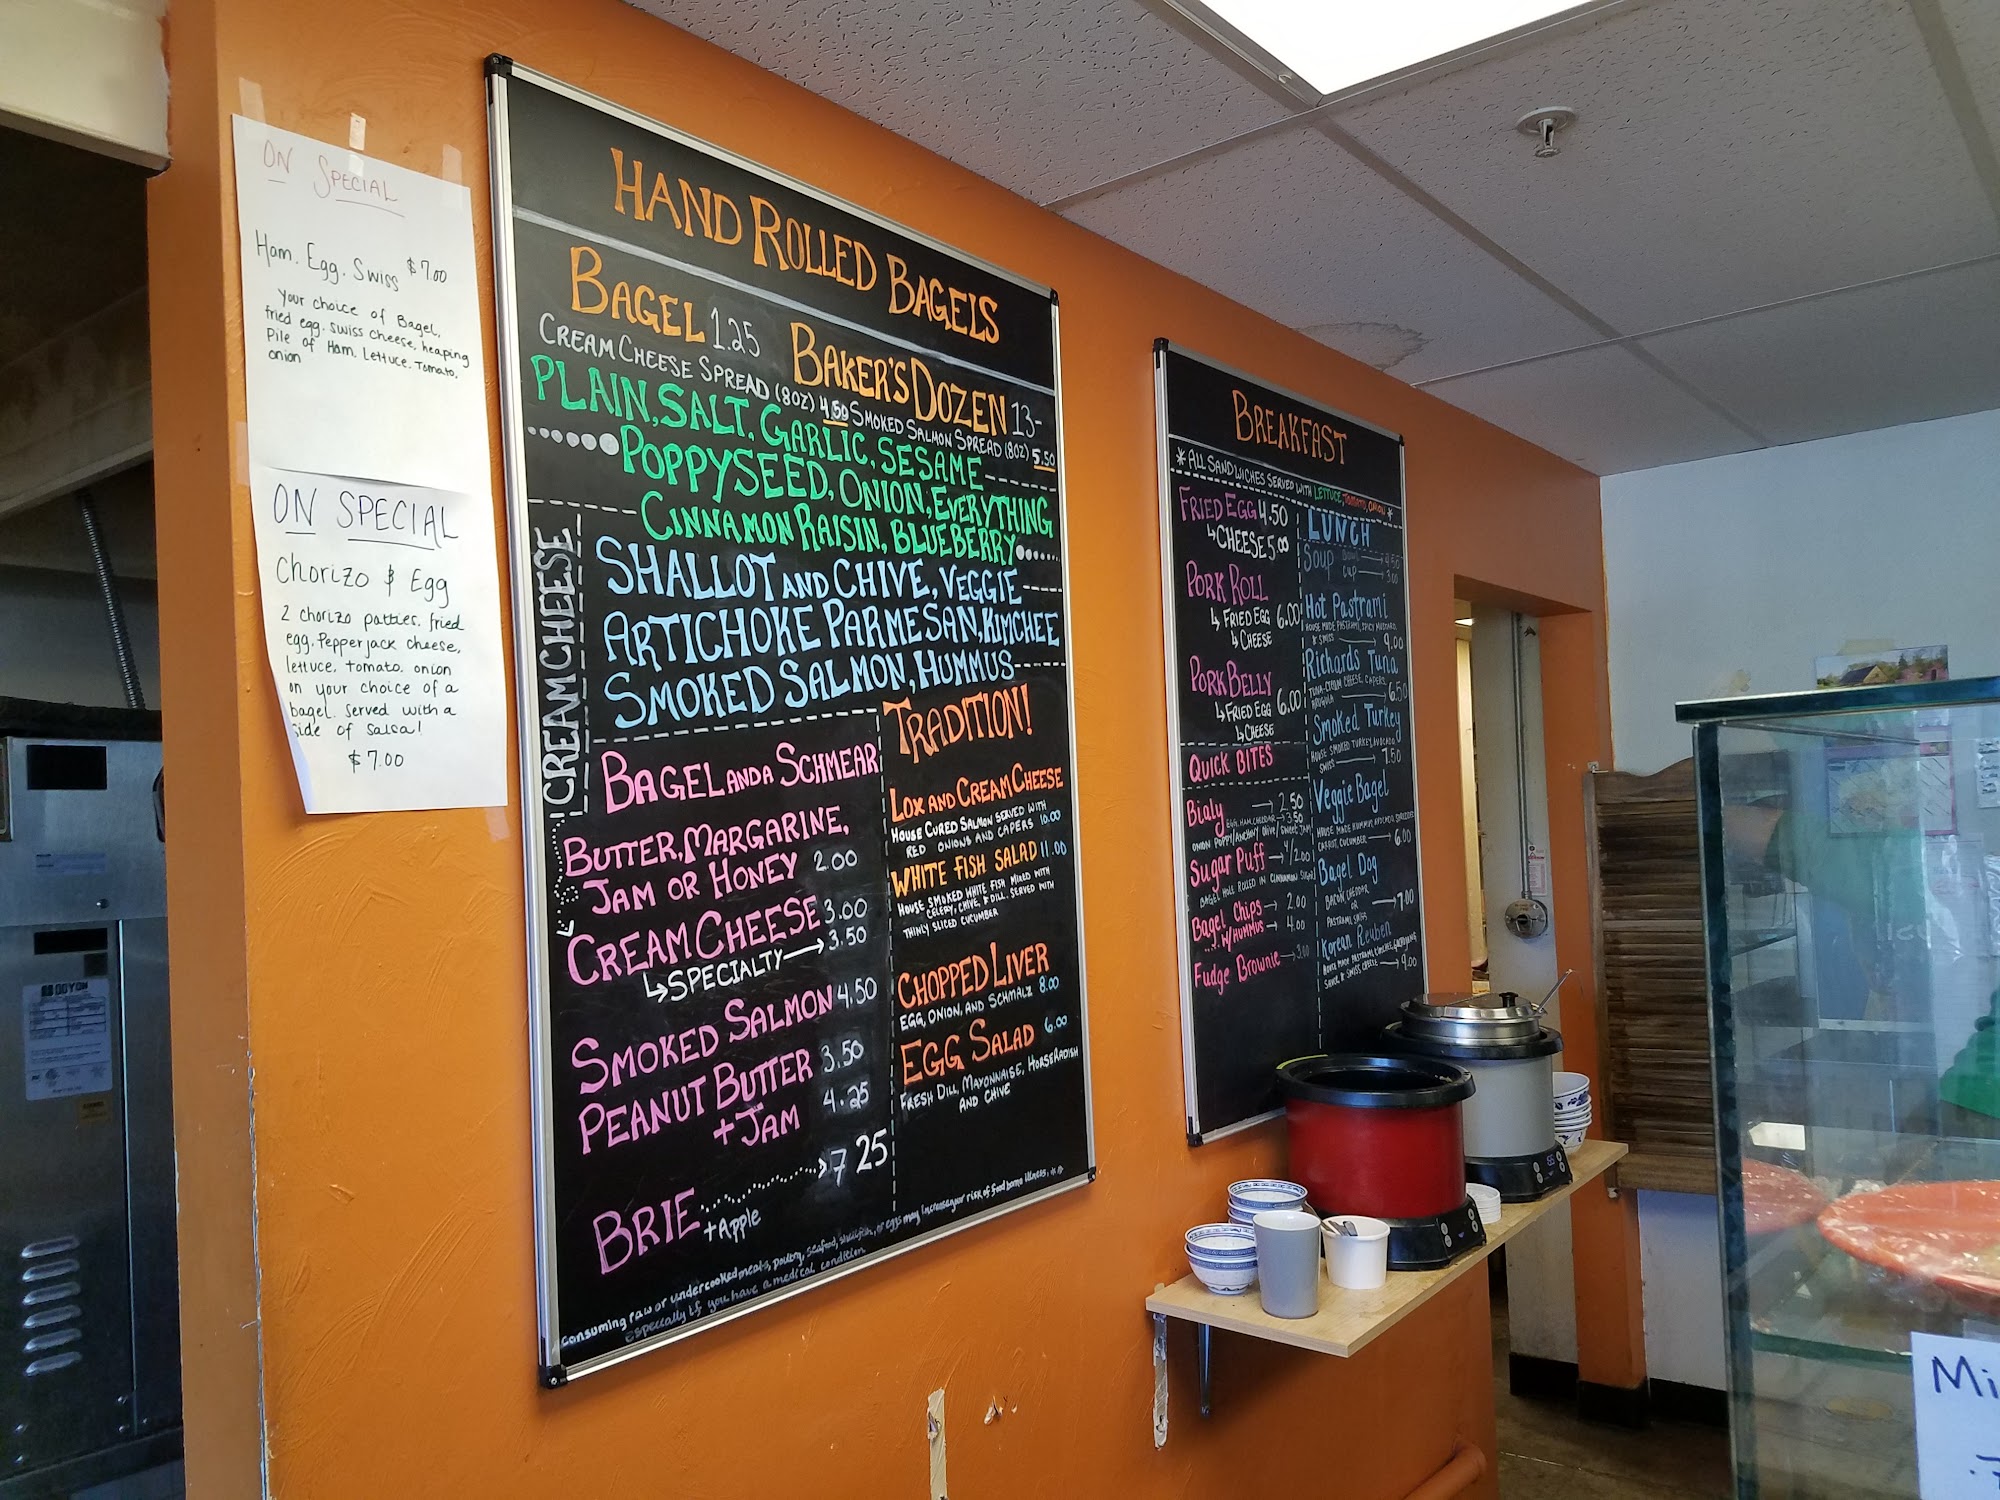 ON SPECIAL
Ham. Egg. Swiss $7.00
Your choice of Bagel,
fried egg. swiss cheese, heaping
Pile of Ham. Lettuce. Tomato.
onion
ON SPECIAL
Chorizo & Egg
2 chorizo patties. fried
egg. Pepperjack cheese,
lettuce. tomato. onion
on your choice of a
bagel. Served with a
side of salsa!
$7.00
HAND ROLLED BAGELS
BAGEL 1.25 BAKER'S DOZEN 13-
CREAM CHEESE SPREAD (8OZ) 4.50 SMOKED SALMON SPREAD (8OZ) 5.50
PLAIN, SALT, GARLIC, SESAME
POPPYSEED, ONION, EVERYTHING
CINNAMON RAISIN, BLUEBERRY
CREAM CHEESE
SHALLOT AND CHIVE, VEGGIE
ARTICHOKE PARMESAN, KIMCHEE
SMOKED SALMON, HUMMUS
BAGEL AND A SCHMEAR
BUTTER, MARGARINE,
JAM OR HONEY 2.00
CREAM CHEESE 3.00
SPECIALTY 3.50
SMOKED SALMON 4.50
PEANUT BUTTER 3.50
+ JAM 4.25
BRIE 7 25
+ Apple
TRADITION!
LOX AND CREAM CHEESE
HOUSE CURED SALMON SERVED WITH
RED ONIONS AND CAPERS 10.00
WHITE FISH SALAD 11.00
HOUSE SMOKED WHITE FISH MIXED WITH
CELERY, CHIVE, & DILL. SERVED WITH
THINLY SLICED CUCUMBER
CHOPPED LIVER
EGG, ONION, AND SCHMALZ 8.00
EGG SALAD 6.00
FRESH DILL, MAYONNAISE, HORSERADISH
AND CHIVE
consuming raw or undercooked meats, poultry, seafood, shellfish, or eggs may increase your risk of foodborne illness,
especially if you have a medical condition
BREAKFAST
*ALL SANDWICHES SERVED WITH LETTUCE, TOMATO, ONION*
FRIED EGG 4.50
CHEESE 5.00
PORK ROLL
FRIED EGG 6.00
CHEESE
PORK BELLY
FRIED EGG 6.00
CHEESE
QUICK BITES
Bialy 2.50
EGG, HAM, CHEDDAR 3.50
ONION POPPY/ANCHOVY OLIVE/SWEET JAM
Sugar Puff 4/2.00
BAGEL HOLE ROLLED IN CINNAMON SUGAR
Bagel Chips 2.00
W/ HUMMUS 4.00
Fudge Brownie 3.00
LUNCH
Soup Bowl 4.50
Cup 3.00
Hot Pastrami
HOUSE MADE PASTRAMI, SPICY MUSTARD,
& SWISS 9.00
Richards Tuna
TUNA-CREAM CHEESE, CAPERS,
ARUGULA 6.50
Smoked Turkey
HOUSE SMOKED TURKEY, AVOCADO,
SWISS 7.50
Veggie Bagel
HOUSE MADE HUMMUS, AVOCADO, SHREDDED
CARROT, CUCUMBER 6.00
Bagel Dog
BACON CHEDDAR
OR 7.00
PASTRAMI, SWISS
Korean Reuben
HOUSE MADE PASTRAMI, KIMCHEE,
SAUCE & SWISS CHEESE 9.00
DOYON
Mi